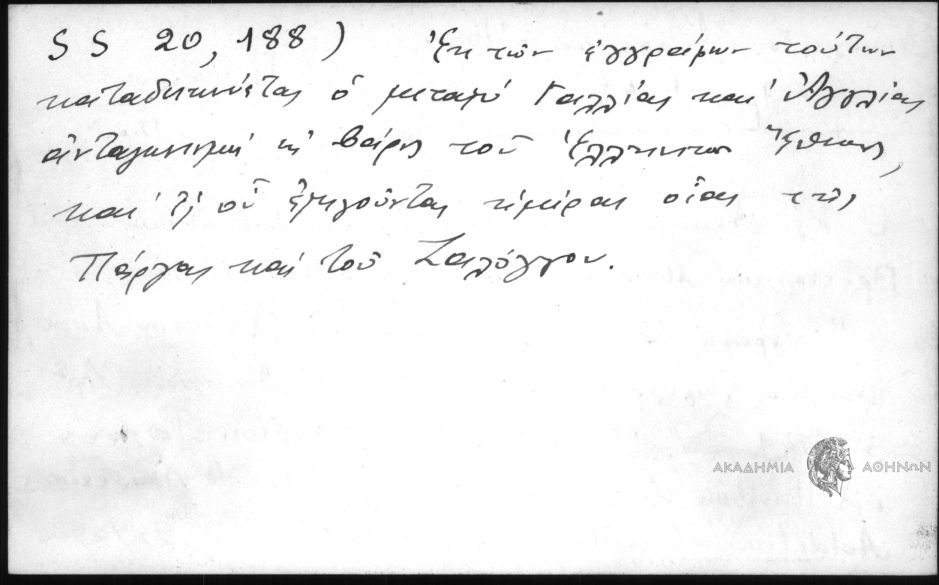 SS 20, 188) Ἐκ τῶν ἐγγράφων τούτων
καταδεικνύεται ὁ μεταξὺ Γαλλίας καὶ Ἀγγλίας
ἀνταγωνισμὸς εἰς βάρος τοῦ Ἑλληνικοῦ Ἔθνους,
καὶ τὶ οὗ ἡμέρας οἵας τῆς
Πάργας καὶ τοῦ Ζαλόγγου.
ΑΚΑΔΗΜΙΑ ΑΘΗΝΩΝ